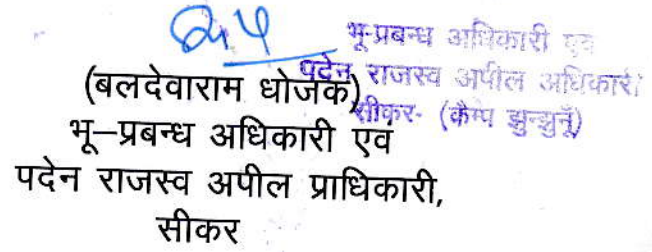 भू-प्रबन्ध अधिकारी एवं
पदेन राजस्व अपील अधिकारी
सीकर- (कैम्प झुन्झुनूँ)
(बलदेवाराम धोजक)
भू–प्रबन्ध अधिकारी एवं
पदेन राजस्व अपील प्राधिकारी,
सीकर